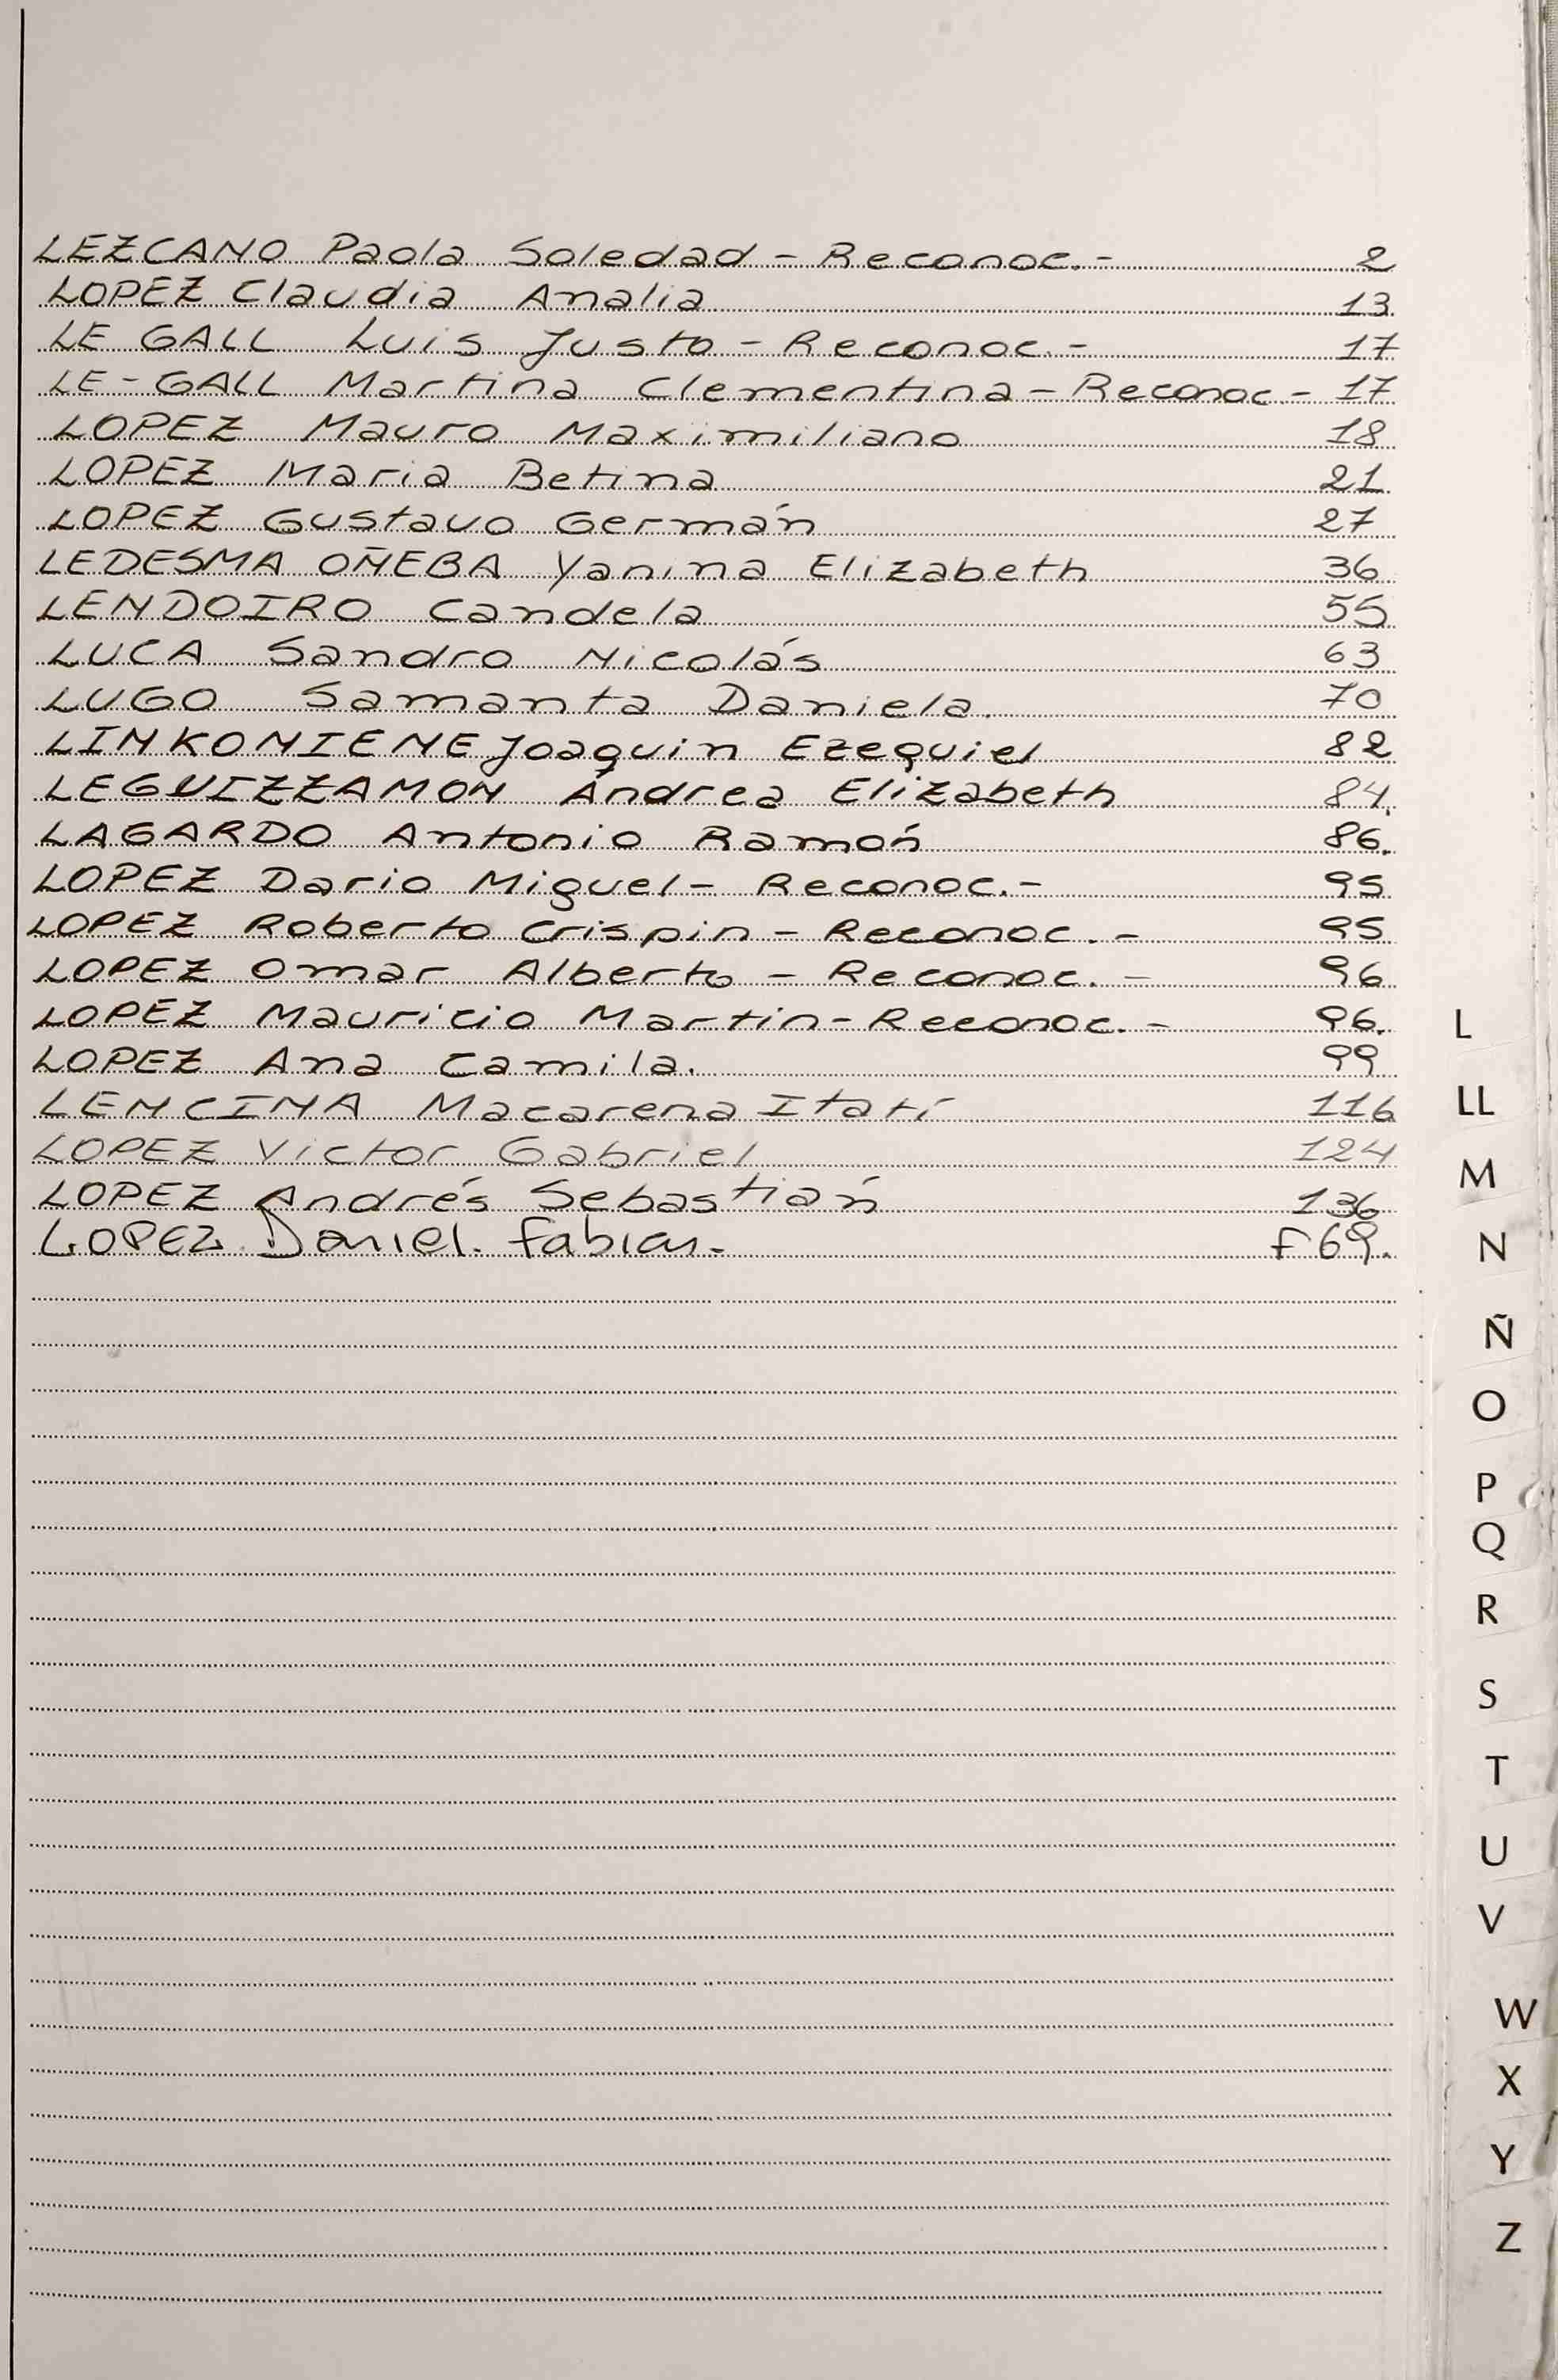 LEZCANO Paola Soledad - Reconoc. - 2
LOPEZ Claudia Analia 13
LE GALL Luis Justo - Reconoc. - 17
LE-GALL Martina Clementina - Reconoc - 17
LOPEZ Mauro Maximiliano 18
LOPEZ Maria Betina 21
LOPEZ Gustavo Germán 27
LEDESMA OÑEBA Yanina Elizabeth 36
LENDOIRO Candela 55
LUCA Sandro Nicolás 63
LUGO Samanta Daniela. 70
LINKONIENE Joaquin Ezequiel 82
LEGUIZZAMON Andrea Elizabeth 84.
LAGARDO Antonio Ramón 86.
LOPEZ Dario Miguel - Reconoc. - 95
LOPEZ Roberto Crispin - Reconoc. - 95
LOPEZ Omar Alberto - Reconoc. - 96
LOPEZ Mauricio Martin - Reconoc. - 96.
LOPEZ Ana Camila. 99
LENCINA Macarena Itatí 116
LOPEZ Victor Gabriel 124
LOPEZ Andrés Sebastián 136
LOPEZ Daniel. Fabian. F 69.
L
LL
M
N
Ñ
O
P
Q
R
S
T
U
V
W
X
Y
Z